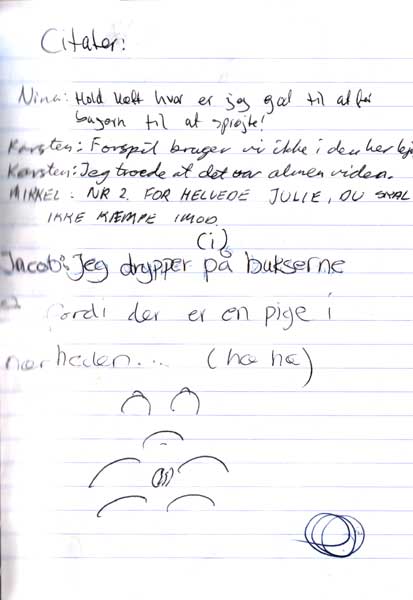 Citater:
Nina: Hold kæft hvor er jeg god til at få
bageren til at sprøjte!
Karsten: Forspil bruger vi ikke i den her lej
Karsten: Jeg troede at det var almen viden.
MIKKEL: NR 2. FOR HELVEDE JULIE, DU SKAL
IKKE KÆMPE IMOD.
(i)
Jacob: Jeg drypper på bukserne
fordi der er en pige i
nærheden... (ha ha)